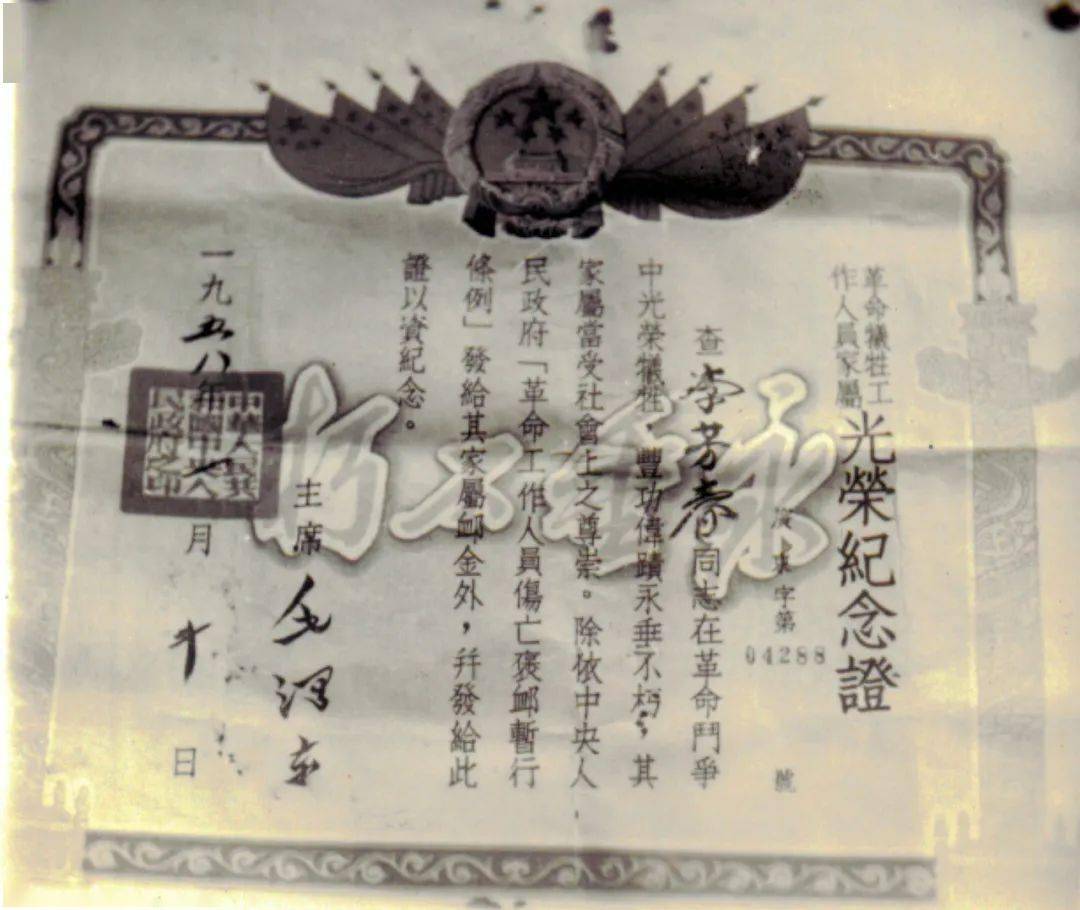 革命犧牲工
作人員家屬
光榮紀念證
字第
04288
號
查李芳春同志在革命鬥爭
中光榮犧牲，豐功偉蹟永垂不朽，其
家屬當受社會上之尊崇。除依中央人
民政府「革命工作人員傷亡褒卹暫行
條例」發給其家屬卹金外，幷發給此
證以資紀念。
主席 毛澤東
一九五八年
月
日
中華人民共
和國中央人
民政府之印
永垂不朽